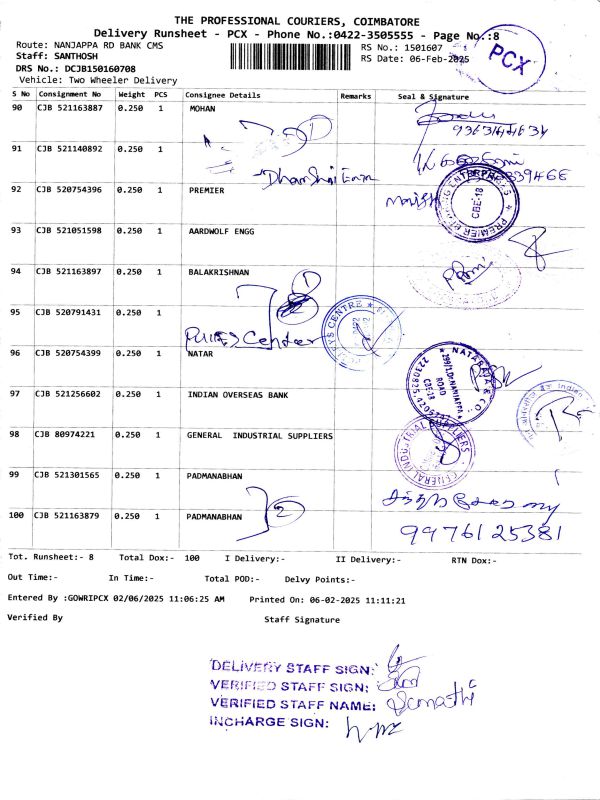 THE PROFESSIONAL COURIERS, COIMBATORE
Delivery Runsheet - PCX - Phone No.:0422-3505555 - Page No.:8
Route: NANJAPPA RD BANK CMS
RS No.: 1501607
Staff: SANTHOSH
RS Date: 06-Feb-2025
DRS No.: DCJB150160708
Vehicle: Two Wheeler Delivery
PCX
S No Consignment No Weight PCS Consignee Details Remarks Seal & Signature
90 CJB 521163887 0.250 1 MOHAN
9363144634
91 CJB 521140892 0.250 1
92 CJB 520754396 0.250 1 PREMIER
CBE-18
93 CJB 521051598 0.250 1 AARDWOLF ENGG
94 CJB 521163897 0.250 1 BALAKRISHNAN
95 CJB 520791431 0.250 1
Center
96 CJB 520754399 0.250 1 NATAR
NATARAJA & CO.
ROAD
CBE-18
97 CJB 521256602 0.250 1 INDIAN OVERSEAS BANK
98 CJB 80974221 0.250 1 GENERAL INDUSTRIAL SUPPLIERS
GENERAL INDUSTRIAL SUPPLIERS
99 CJB 521301565 0.250 1 PADMANABHAN
100 CJB 521163879 0.250 1 PADMANABHAN
2
9976125381
Tot. Runsheet:- 8 Total Dox:- 100 I Delivery:- II Delivery:- RTN Dox:-
Out Time:- In Time:- Total POD:- Delvy Points:-
Entered By :GOWRIPCX 02/06/2025 11:06:25 AM Printed On: 06-02-2025 11:11:21
Verified By Staff Signature
DELIVERY STAFF SIGN:
VERIFIED STAFF SIGN:
VERIFIED STAFF NAME:
INCHARGE SIGN: